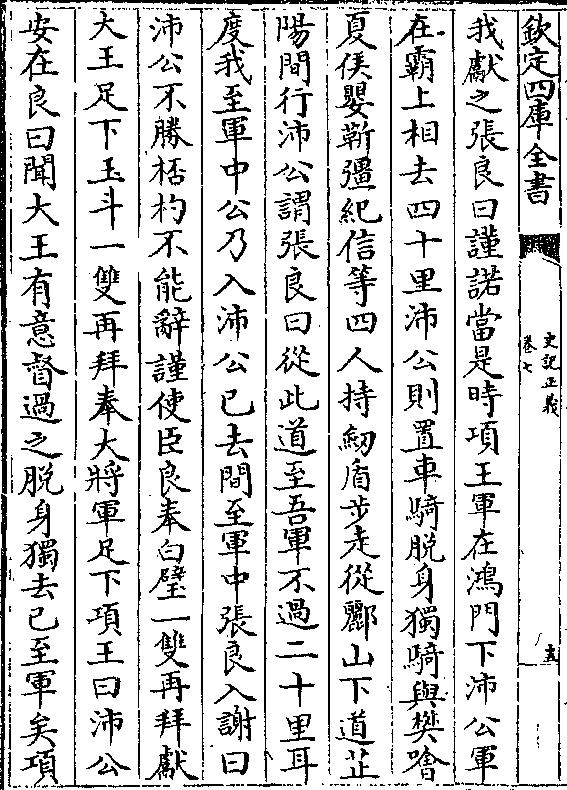 欽定四庫全書
史記正義
卷七
十五
我獻之張良曰謹諾當是時項王軍在鴻門下沛公軍
在霸上相去四十里沛公則置車騎脫身獨騎與樊噲
夏侯嬰靳彊紀信等四人持劒盾步走從酈山下道芷
陽間行沛公謂張良曰從此道至吾軍不過二十里耳
度我至軍中公乃入沛公已去間至軍中張良入謝曰
沛公不勝桮杓不能辭謹使臣良奉白璧一雙再拜獻
大王足下玉斗一雙再拜奉大將軍足下項王曰沛公
安在良曰聞大王有意督過之脫身獨去已至軍矣項